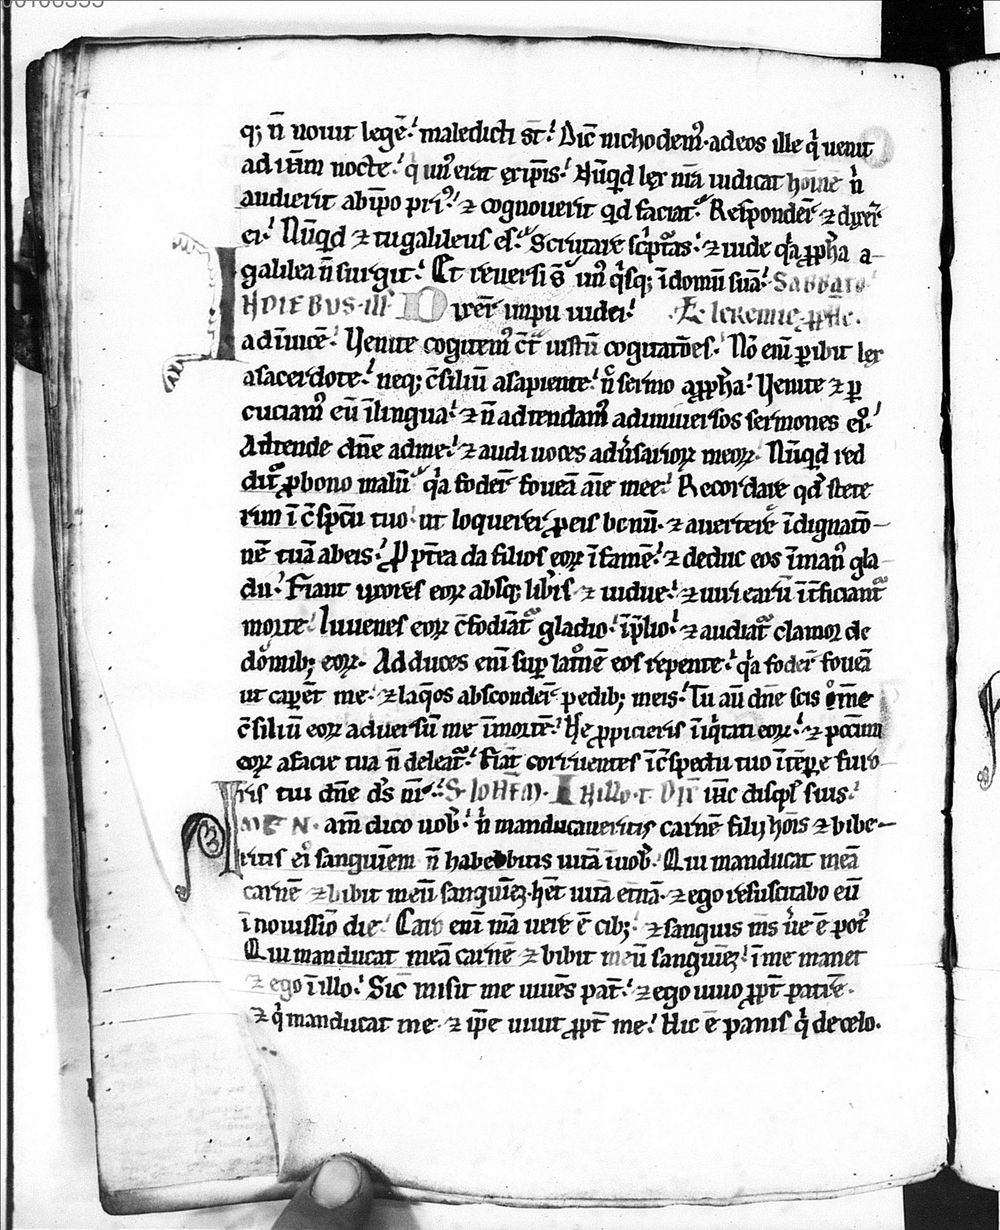 q; n̄ nouit legē. maledicti st̄. Dic̄ nichodem᷒ ad eos ille q̇ uenit
ad ih̄m nocte. q̇ un᷒ erat ex ip̄is. Nūqd lex n̄ra iudicat hoīne n̄
audierit ab ip̄o pri᷒. ⁊ cognouerit qd faciat. Responder̄ ⁊ dixer̄
ei. Nūqd ⁊ tu galileus es. Scrutare sc̄ptas. ⁊ uide q̇a ꝓph̄a a
galilea n̄ surgit. Et reuersi s̄ un᷒ q̇sq; ī domū suā. Sabbato
IN DIEBUS ill̄ Dixer̄ impii iudei. Ł Ieremie ꝓph̄e.
ad inuicē. Uenite cogitem᷒ ct̄ iustū cogitatōes. Nō enī ꝑibit lex
a sacerdote. neq; c̄siliū a sapiente. n̄ sermo a ꝓph̄a. Uenite ⁊ ꝑ
cuciam᷒ eū ī lingua. ⁊ n̄ adtendam᷒ ad uniuersos sermones ei᷒.
Adtende dn̄e ad me. ⁊ audi uoces adūsarioꝝ meoꝝ. Nūqd red
dit᷑ ꝓ bono malū q̇a foder̄ foueā aīe mee. Recordare qd stete
rim ī c̄spc̄tu tuo. ut loquerer ꝓ eis bonū. ⁊ auerterē īdignatō
nē tuā ab eis. Ꝓpt̄ea da filios eoꝝ ī famē. ⁊ deduc eos ī man᷒ gla
dii. Fiant uxores eoꝝ absq; lib̄is ⁊ uidue. ⁊ uiri earū īt̄ficiant᷑
morte. Iuuenes eoꝝ c̄fodiāt᷑ gladio. ī p̄lio. ⁊ audiat᷑ clamor de
domib; eoꝝ. Adduces enī suꝑ latōnē eos repente. q̇a foder̄ foueā
ut caꝑēt me. ⁊ laq̄os absconder̄ pedib; meis. Tu au dn̄e scis om̄e
c̄siliū eoꝝ aduersū me ī mortē. Ne ꝓpicieris īiq̇tati eoꝝ. ⁊ pcc̄um
eoꝝ a facie tua n̄ deleat᷑. Fiāt corruentes ī c̄spectu tuo ī tēꝑe furo
ris tui dn̄e ds̄ nr̄. S. IOHEM. IN illo t. Dix̄ ih̄c discpl̄ suis.
AMEN. am̄ dico uob̄. n̄ manducaueritis carnē filij hōis ⁊ bibe
ritis ei᷒ sanguīem n̄ habebitis uitā ī uob̄. Qui manducat meā
carnē ⁊ bibit meū sanguīeꝫ. het̄ uitā et̄nā. ⁊ ego resuscitabo eū
ī nouissīo die. Caro enī m̄a uere ē cib;. ⁊ sanguis ms̄ ūe ē pot᷒
Qui manducat meā carnē ⁊ bibit meū sanguīeꝫ. ī me manet
⁊ ego ī illo. Sic̄ misit me uiuēs pat̄. ⁊ ego uiuo ꝓpt̄ patrē.
⁊ q̇ manducat me. ⁊ ip̄e uiuit ꝓpt̄ me. Hic ē panis q̇ de celo.